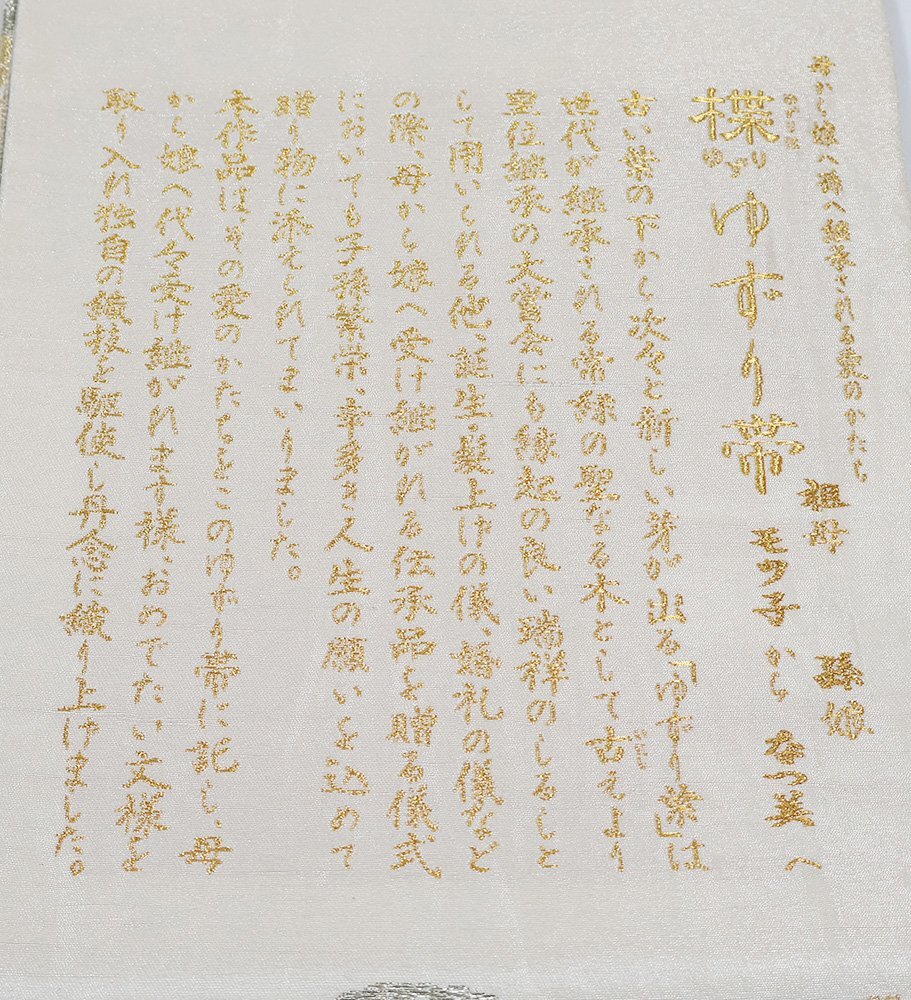 母から娘へ孫へ継承される愛のかたち
祖母 孫娘
モヨ子 から なつ美 へ
楪 ゆずり帯
ゆずり
古い葉の下から次々と新しい芽が出る「ゆずり葉」は
世代が継承される常緑の聖なる木として古えより
皇位継承の大嘗会にも縁起の良い瑞祥のしるしと
して用いられる他、誕生・髪上げの儀、婚礼の儀など
の際、母から嫁へ受け継がれる伝承品を贈る儀式
においても子孫繁栄、幸多き人生の願いを込めて
贈り物に添えられてまいりました。
本作品は、その愛のかたちをこのゆずり帯に記し、母
から娘へ代々受け継がれます様、おめでたい文様を
取り入れ独自の織技を駆使し丹念に織り上げました。